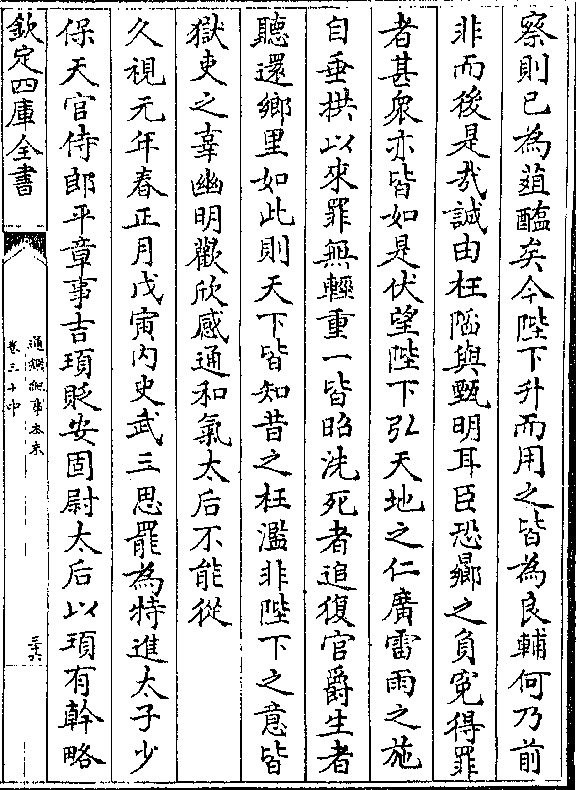 察則已為葅醢矣今陛下升而用之皆為良輔何乃前
非而後是哉誠由枉陷與甄明耳臣恐曏之負寃得罪
者甚衆亦皆如是伏望陛下弘天地之仁廣雷雨之施
自垂拱以來罪無輕重一皆昭洗死者追復官爵生者
聽還鄉里如此則天下皆知昔之枉濫非陛下之意皆
獄吏之辜幽明歡欣感通和氣太后不能從
久視元年春正月戊寅内史武三思罷為特進太子少
保天官侍郎平章事吉頊貶安固尉太后以頊有幹略
欽定四庫全書
通鑑紀事本末
卷三十中
三十六